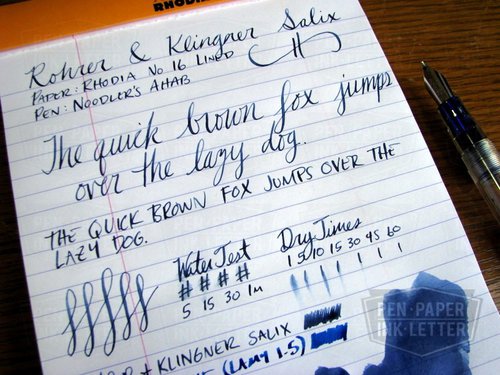 RHODIA
Rohrer & Klingner Salix
PAPER: RHODIA No. 16 LINED
PEN: NOODLER'S AHAB
The quick brown fox jumps
over the lazy dog.
THE QUICK BROWN FOX JUMPS OVER THE
LAZY DOG.
Water Test
# # # #
5 15 30 1m
Dry Times
1 5 10 15 30 45 60
KLINGNER SALIX
(LAMY 1.5)
PEN · PAPER
INK · LETTER